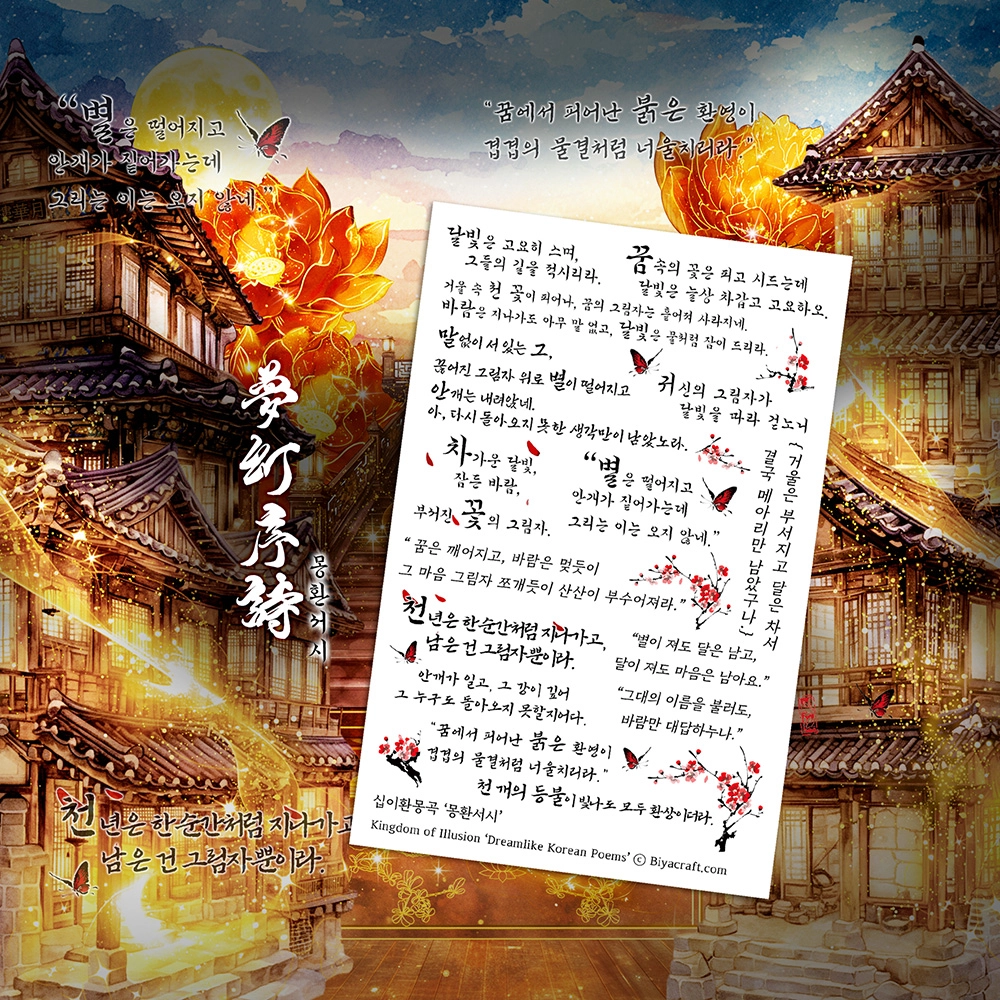 “별은 떨어지고
안개가 짙어가는데
그리는 이는 오지 않네.”
“꿈에서 피어난 붉은 환영이
겹겹의 물결처럼 너울치리라.”
夢幻序詩
몽환서시
천년은 한순간처럼 지나가고
남은 건 그림자뿐이라.
달빛은 고요히 스며,
그들의 길을 적시리라.
꿈속의 꽃은 피고 시드는데
달빛은 늘상 차갑고 고요하오.
거울 속 천 꽃이 피어나, 꿈의 그림자는 흩어져 사라지네.
바람은 지나가도 아무 말 없고, 달빛은 물처럼 잠이 드리라.
말없이 서 있는 그,
끊어진 그림자 위로 별이 떨어지고
안개는 내려앉네.
아, 다시 돌아오지 못한 생각만이 남았노라.
귀신의 그림자가
달빛을 따라 걷노니
(거울은 부서지고 달은 차서
결국 메아리만 남았구나)
차가운 달빛,
잠든 바람,
부서진 꽃의 그림자.
“별은 떨어지고
안개가 짙어가는데
그리는 이는 오지 않네.”
“꿈은 깨어지고, 바람은 멎듯이
그 마음 그림자 쪼개듯이 산산이 부수어져라.”
천년은 한순간처럼 지나가고,
남은 건 그림자뿐이라.
“별이 져도 달은 남고,
달이 져도 마음은 남아요.”
안개가 일고, 그 강이 깊어
그 누구도 돌아오지 못할지어다.
“그대의 이름을 불러도,
바람만 대답하누나.”
“꿈에서 피어난 붉은 환영이
겹겹의 물결처럼 너울치리라.”
천 개의 등불이 빛나도 모두 환상이더라.
십이환몽곡 ‘몽환서시’
Kingdom of Illusion ‘Dreamlike Korean Poems’ ⓒ Biyacraft.com